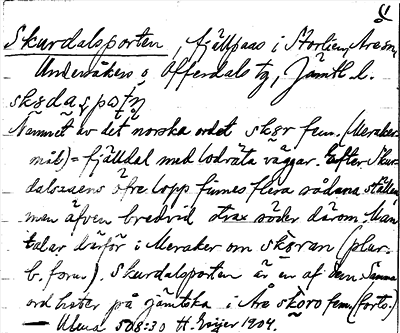 Skurdalsporten, fjällpass i Storlien, Åresn,
Undersåkers o Offerdals tg, Jämtl. l.
Namnet av det norska ordet skør fem. (Meraker
mål) = fjälldal med lodräta väggar. Efter Skur
dalsåsens öfre lopp finnes flera sådana ställen,
men äfven bredvid strax söder därom. Man
talar därför i Meraker om skøran (plur.
b. form). Skurdalsporten är en af dem. Samma
ord heter på jämtska i Åre skoro fem. (forts.)
Ulma 508:30 H. Geijer 1904.